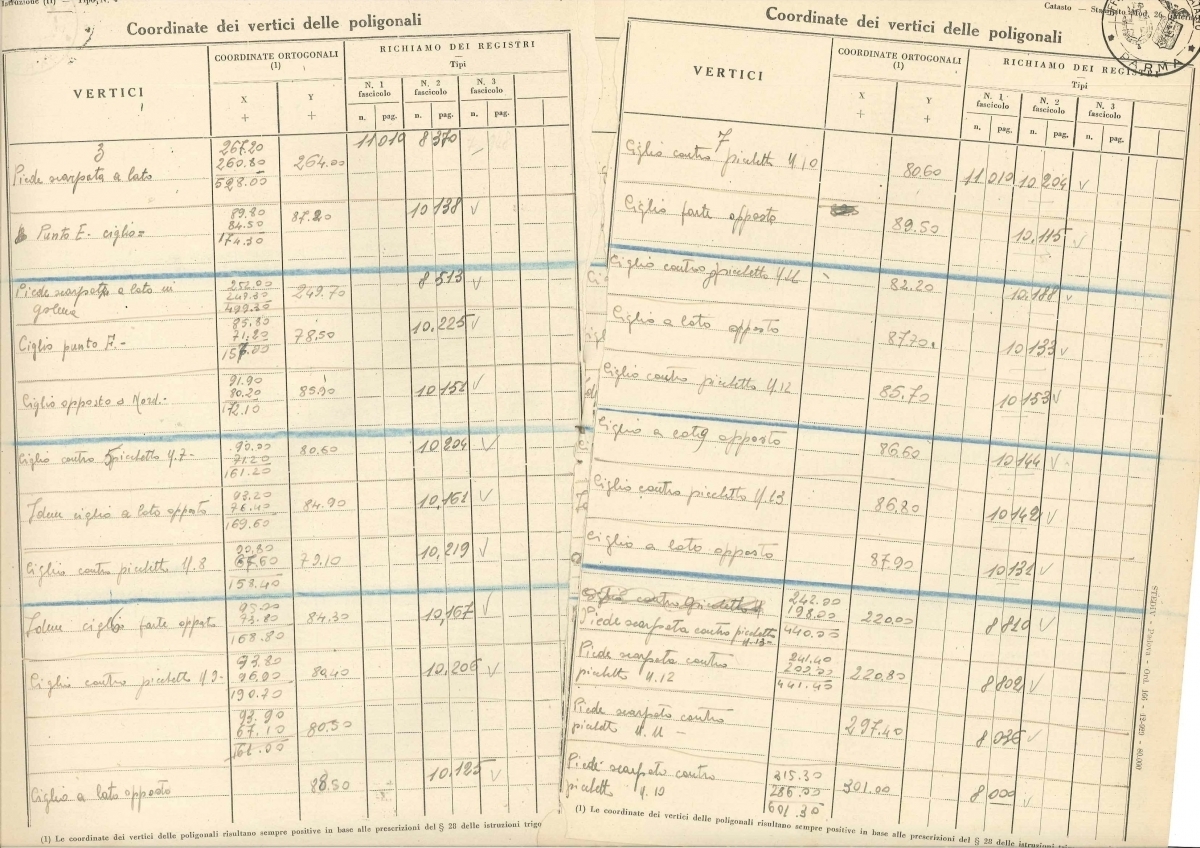 Coordinate dei vertici delle poligonali
VERTICI
COORDINATE ORTOGONALI
(1)
RICHIAMO DEI REGISTRI
Tipi
X
+
Y
+
N. 1
fascicolo
N. 2
fascicolo
N. 3
fascicolo
n. pag. n. pag. n. pag.
3
267.20
260.80
528.00
Piede scarpata a lato 264.00 11 019 8 370
89.80
84.50
174.30
Punto E. ciglio= 87.20 10 138 √
252.00
499.30
Piede scarpata a lato in
golena 249.70 8 513 √
85.80
71.20
157.00
Ciglio punto F.- 78.50 10.225 √
91.90
80.20
172.10
Ciglio opposto a Nord.- 85.90 10 151 √
90.00
71.20
161.20
Ciglio contro picchetto N.7- 80.60 10 204 √
93.20
76.40
169.60
Idem ciglio a lato opposto 84.90 10,161 √
90.80
153.40
Ciglio contro picchetto N.8 79.10 10,219 √
168.80
Idem ciglio parte opposto 84.30 10,167 √
93.80
96.90
190.70
Ciglio contro picchetto N.9- 80.40 10,206 √
93.90
67.10
161.00
80.50
Ciglio a lato opposto 88.50 10.125 √
(1) Le coordinate dei vertici delle poligonali risultano sempre positive in base alle prescrizioni del § 28 delle istruzioni
Catasto —
PARMA
Coordinate dei vertici delle poligonali
VERTICI
COORDINATE ORTOGONALI
(1)
RICHIAMO DEI REGISTRI
Tipi
X
+
Y
+
N. 1
fascicolo
N. 2
fascicolo
N. 3
fascicolo
n. pag. n. pag. n. pag.
7
Ciglio contro picchetto N.10 80.60 11 019 10 204 √
Ciglio parte opposto 89.50 10.115 √
Ciglio contro picchetto N.11 82.20 10.188 √
Ciglio a lato opposto 87.70 10 133 √
Ciglio contro picchetto N.12 85.70 10 153 √
Ciglio a lato opposto 86.60 10 144 √
Ciglio contro picchetto N.13 86.80 10 142 √
Ciglio a lato opposto 87.90 10 131 √
242.00
198.00
440.00
Piede scarpata contro picchetto
N.13- 220.00 8 810 √
241.40
200.00
441.40
Piede scarpata contro
picchetto N.12 220.80 8 802 √
Piede scarpata contro
picchetto N.11 - 297.40 8 036 √
315.30
286.00
601.30
Piede scarpata contro
picchetto N.10 301.00 8 000 √
(1) Le coordinate dei vertici delle poligonali risultano sempre positive in base alle prescrizioni del § 28 delle istruzioni